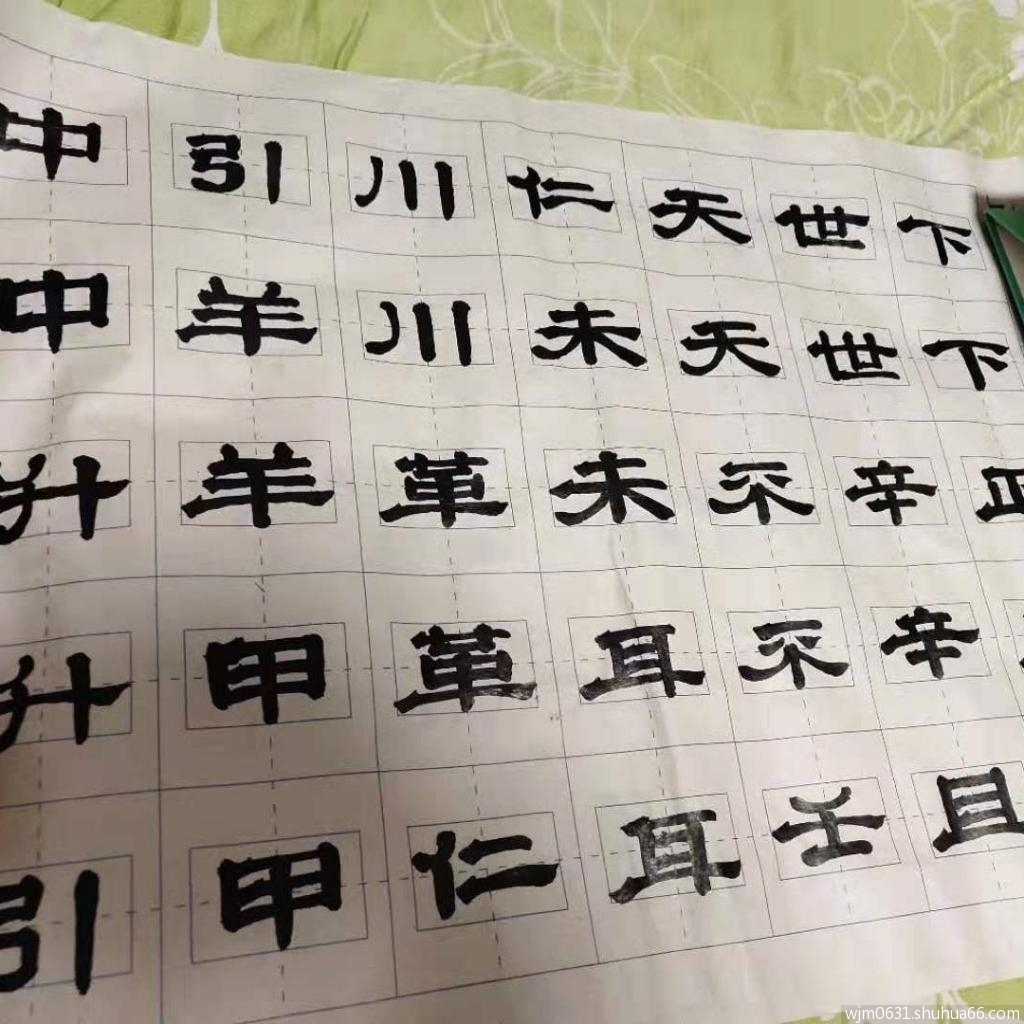 中中升升引
引羊羊甲甲
川川革革仁
仁未未耳耳
天天不不壬
世世辛辛且
下下
wjm0631.shuhua66.com